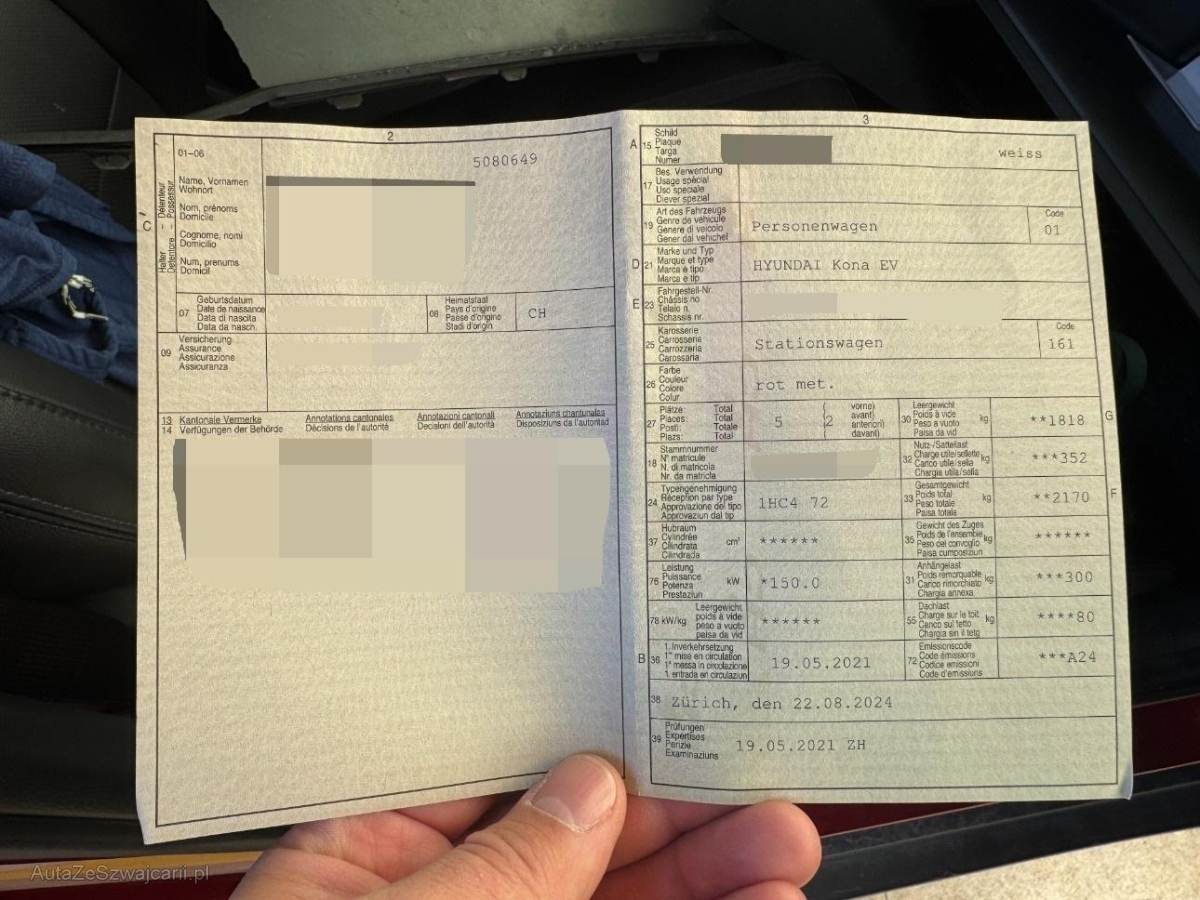 2
01-06
5080649
Halter – Détenteur
Detentore – Possessur
C
Name, Vornamen
Wohnort
Nom, prénoms
Domicile
Cognome, nomi
Domicilio
Num, prenums
Domicil
07
Geburtsdatum
Date de naissance
Data di nascita
Data da nasch.
08
Heimatstaat
Pays d'origine
Paese d'origine
Stadi d'origin
CH
09
Versicherung
Assurance
Assicurazione
Assicuranza
13 Kantonale Vermerke
14 Verfügungen der Behörde
Annotations cantonales
Décisions de l'autorité
Annotazioni cantonali
Decisioni dell'autorità
Annotaziuns chantunalas
Disposiziuns da l'autoritad
3
A 15
Schild
Plaque
Targa
Numer
weiss
17
Bes. Verwendung
Usage spécial
Uso speciale
Diever spezial
19
Art des Fahrzeugs
Genre de véhicule
Genere di veicolo
Gener dal vehichel
Personenwagen
Code
01
D 21
Marke und Typ
Marque et type
Marca e tipo
Marca e tip
HYUNDAI Kona EV
E 23
Fahrgestell-Nr.
Châssis no
Telaio n.
Schassis nr.
25
Karosserie
Carrosserie
Carrozzeria
Carossaria
Stationswagen
Code
161
26
Farbe
Couleur
Colore
Colur
rot met.
27
Plätze: Total
Places: Total
Posti: Totale
Plazs: Total
5
(2
vorne)
avant)
anteriori)
davant)
30
Leergewicht
Poids à vide
Peso a vuoto
Paisa da vid
kg
**1818
G
18
Stammnummer
N° matricule
N. di matricola
Nr. da matricla
32
Nutz-/Sattellast
Charge utile/sellette
Carico utile/sella
Chargia utila/sella
kg
***352
24
Typengenehmigung
Réception par type
Approvazione del tipo
Approvaziun dal tip
1HC4 72
33
Gesamtgewicht
Poids total
Peso totale
Paisa totala
kg
**2170
F
37
Hubraum
Cylindrée
Cilindrata
Cilindrada
cm³
******
35
Gewicht des Zuges
Poids de l'ensemble
Peso del convoglio
Paisa cumposiziun
kg
******
76
Leistung
Puissance
Potenza
Prestaziun
kW
*150.0
31
Anhängelast
Poids remorquable
Carico rimorchiato
Chargia annexa
kg
***300
78 kW/kg
Leergewicht
poids à vide
peso a vuoto
paisa da vid
******
55
Dachlast
Charge sur le toit
Carico sul tetto
Chargia sin il tetg
kg
****80
B 36
1. Inverkehrsetzung
1re mise en circulation
1a messa in circolazione
1. entrada en circulaziun
19.05.2021
72
Emissionscode
Code émissions
Codice emissioni
Code d'emissiuns
***A24
38
Zürich, den 22.08.2024
39
Prüfungen
Expertises
Perizie
Examinaziuns
19.05.2021 ZH
AutaZeSzwajcarii.pl